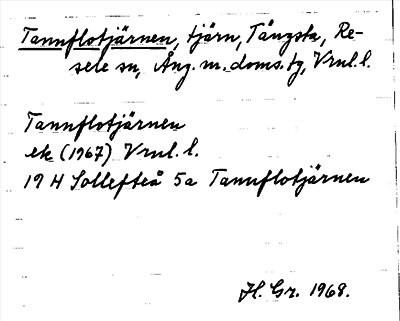 Tannflotjärnen, tjärn, Tångsta, Re-
sele sn, Ång. m. doms. tg, Vrnl. l.
Tannflotjärnen
ek (1967) Vrnl. l.
19 H Sollefteå 5a Tannflotjärnen
H. Gr. 1968.